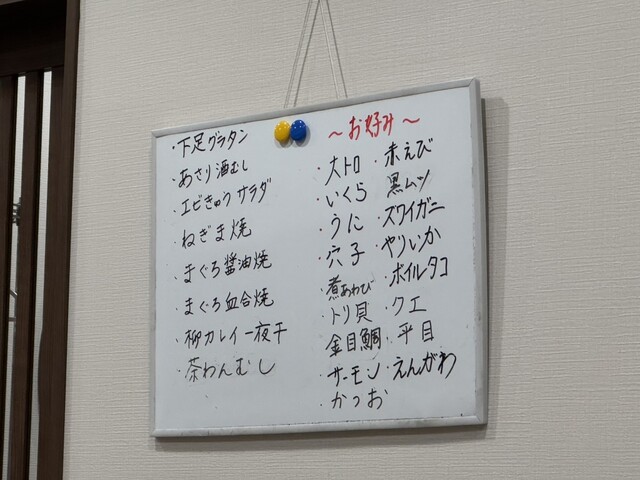 ・下足グラタン
・あさり酒むし
・エビきゅうサラダ
・ねぎま焼
・まぐろ醤油焼
・まぐろ血合焼
・柳カレイ一夜干
・茶わんむし
～お好み～
・大トロ
・いくら
・うに
・穴子
・煮あわび
・トリ貝
金目鯛
・サーモン
・かつお
・赤えび
黒ムツ
・ズワイガニ
・やりいか
・ボイルタコ
・クエ
・平目
・えんがわ